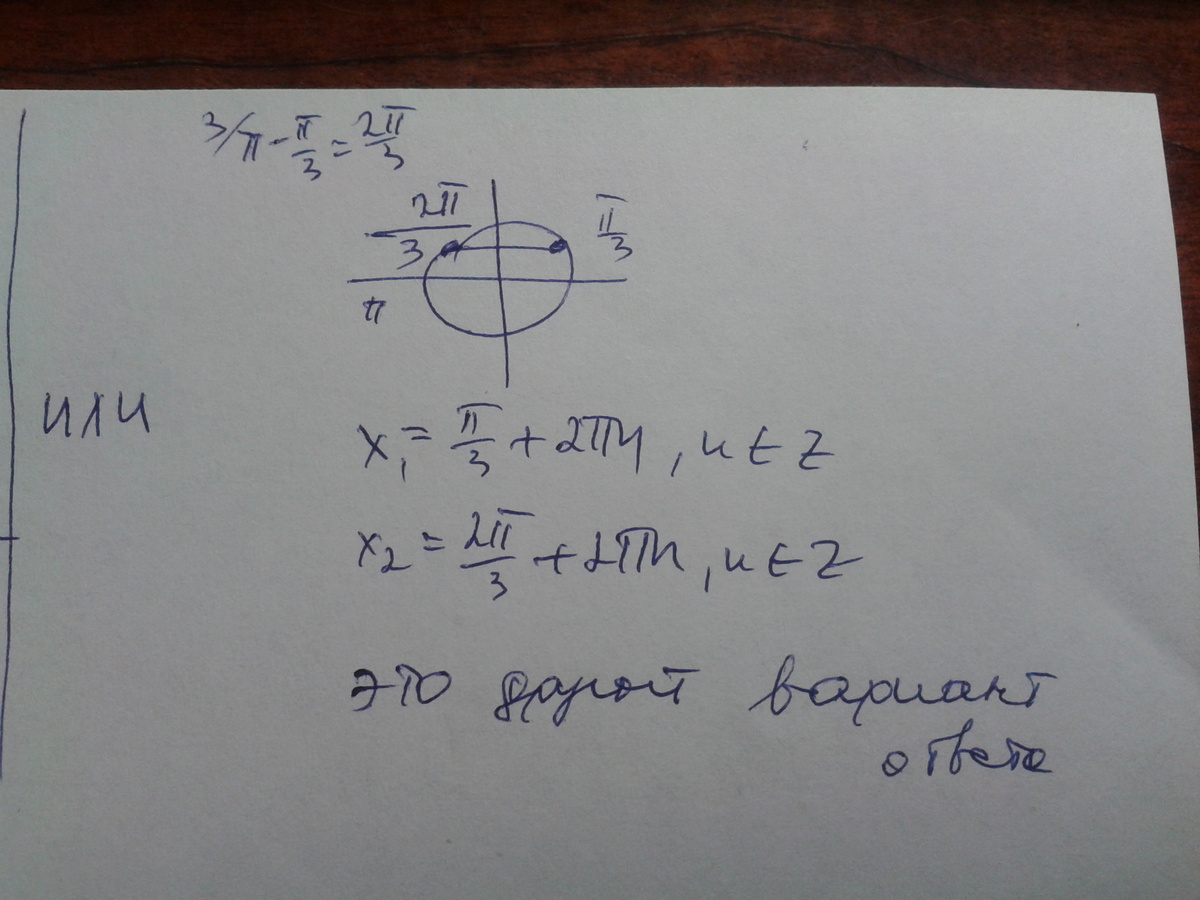 3/π - π/3 = 2π/3
2π/3
π/3
π
или
x₁ = π/3 + 2πn, n ∈ Z
x₂ = 2π/3 + 2πn, n ∈ Z
это другой вариант
ответа